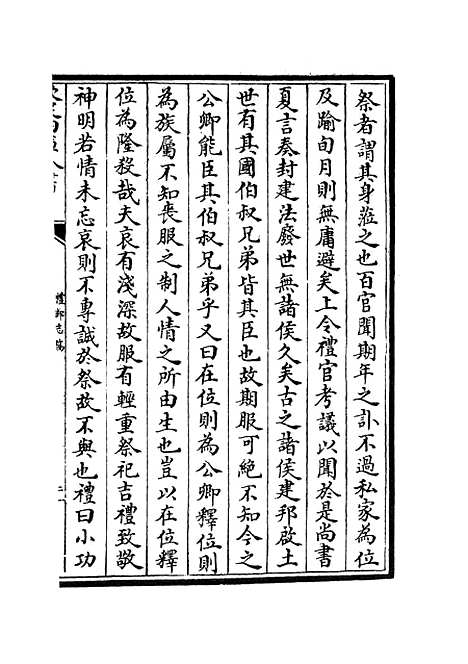 祭者謂其身涖之也百官聞期年之訃不過私家為位
及踰旬月則無庸避矣上令禮官考議以聞於是尚書
夏言奏封建法廢世無諸侯久矣古之諸侯建邦啟土
世有其國伯叔兄弟皆其臣也故期服可絶不知今之
公卿能臣其伯叔兄弟乎又曰在位則為公卿釋位則
為族屬不知喪服之制人情之所由生也豈以在位釋
位為隆殺哉夫哀有淺深故服有輕重祭祀吉禮致敬
神明若情未忘哀則不專誠於祭故不與也禮曰小功
禮部志稿